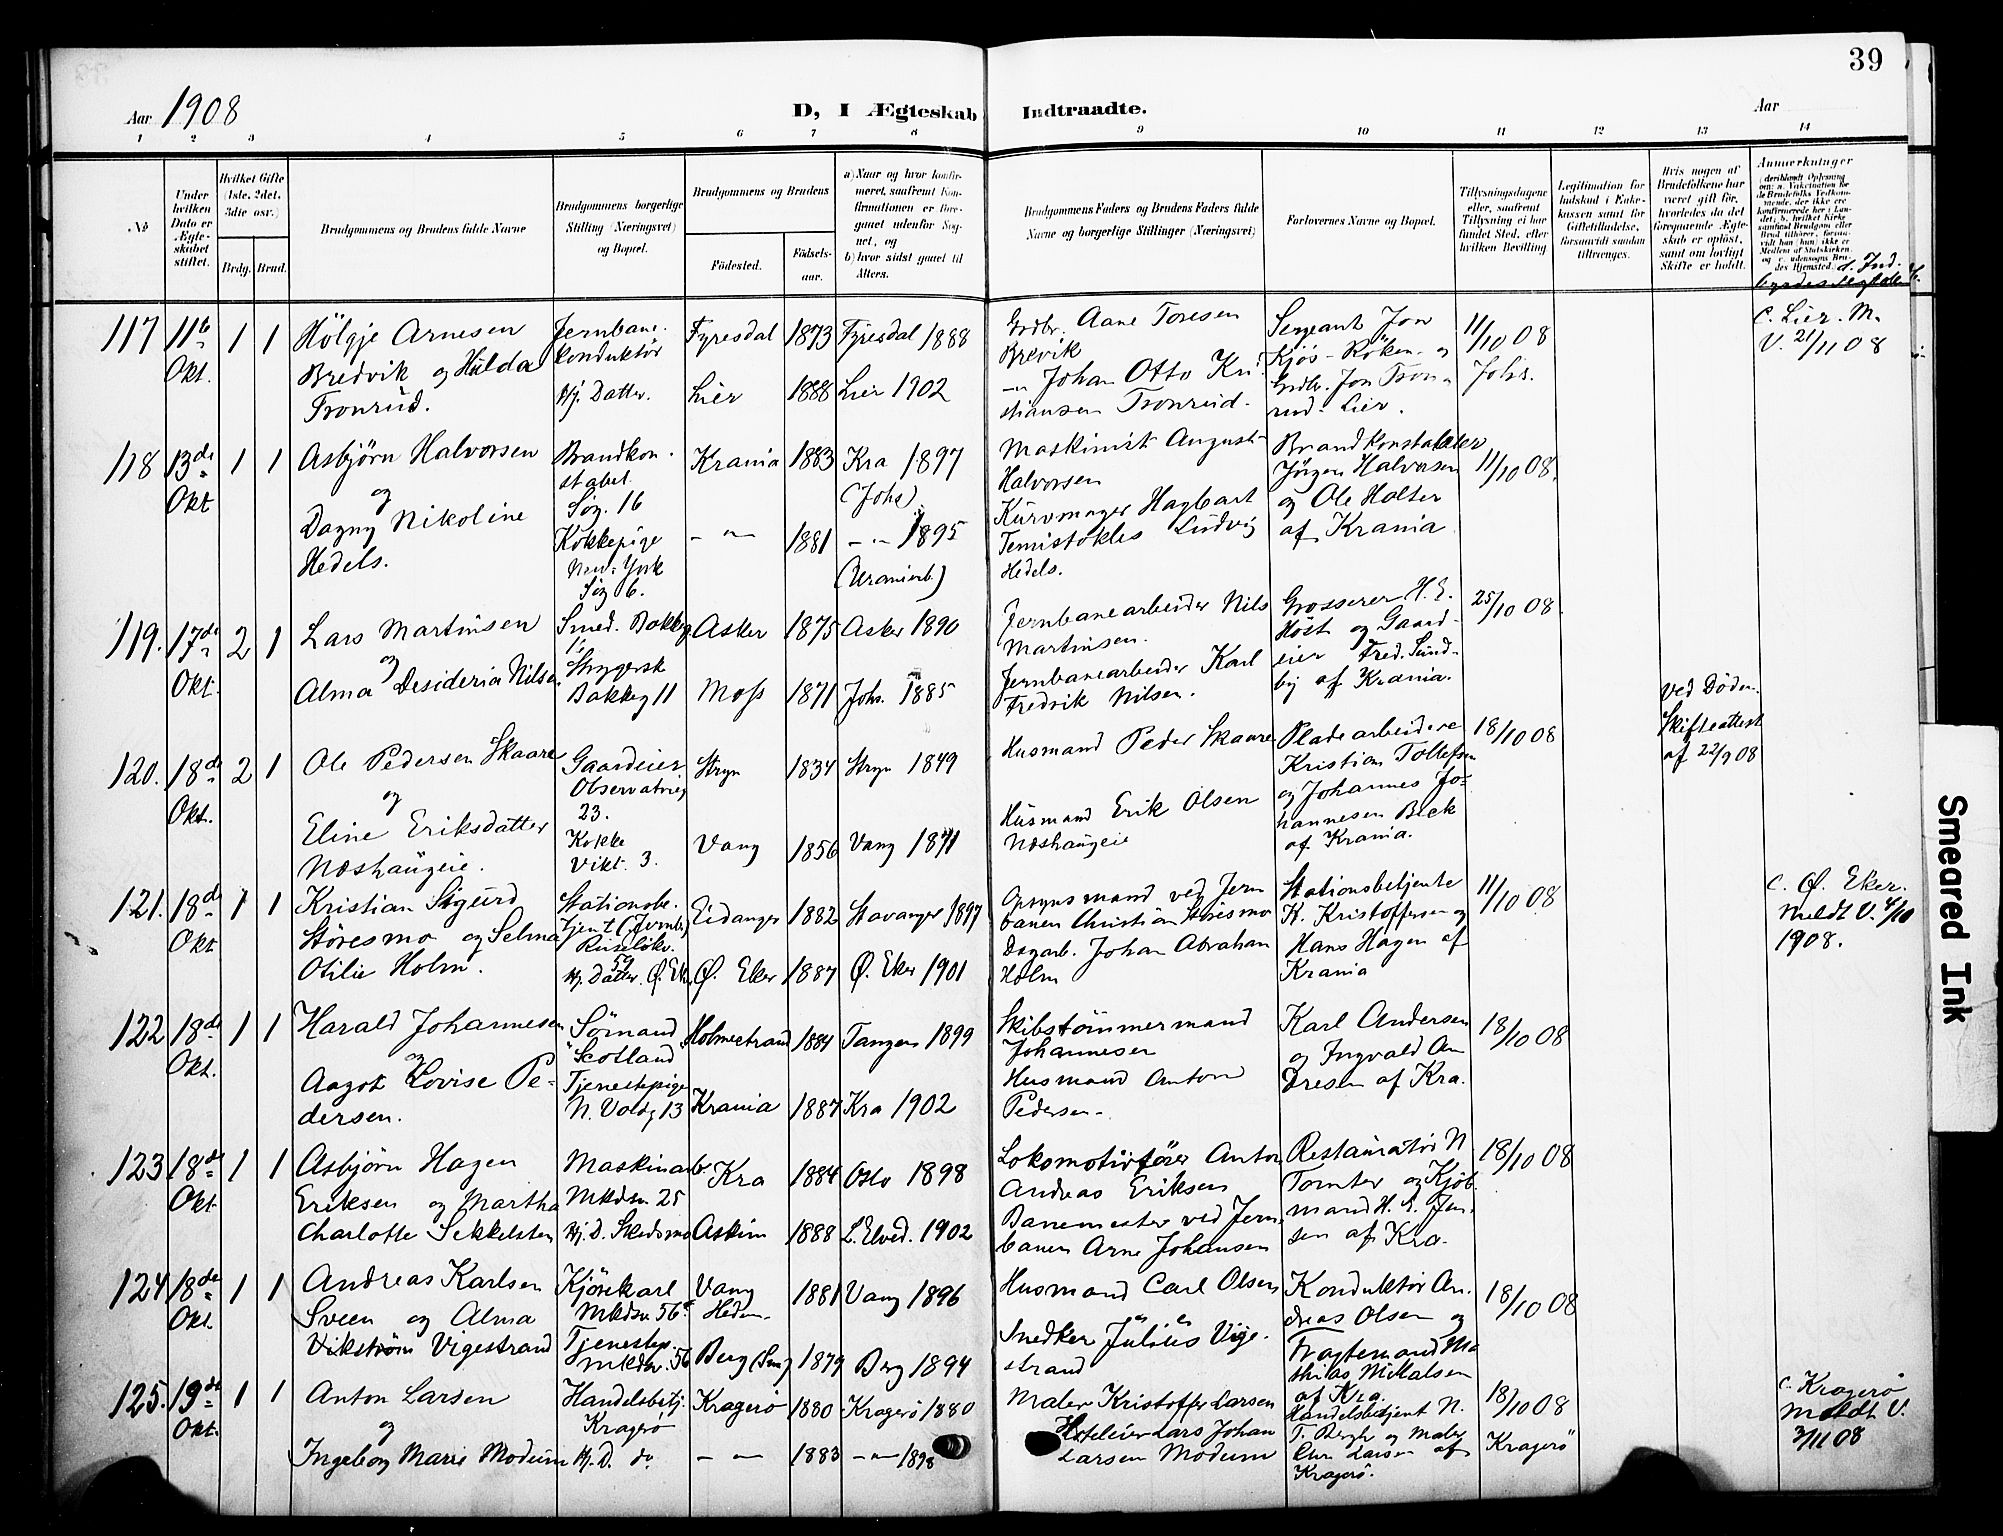 39
Aar 1908
D, I Ægteskab Indtraadte.
Aar
1 2 3 4 5 6 7 8 9 10 11 12 13 14
№
Under hvilken Dato er Ægteskabet stiftet.
Hvilket Gifte (1ste, 2det, 3die osv.)
Brdg. Brud.
Brudgommens og Brudens fulde Navne
Brudgommens borgerlige Stilling (Næringsvei) og Bopæl.
Brudgommens og Brudens
Fødested. Fødsels-aar.
a) Naar og hvor konfirmeret, saafremt Konfirmationen er foregaaet udenfor Sognet, og
b) hvor sidst gaaet til Alters.
Brudgommens Faders og Brudens Faders fulde Navne og borgerlige Stillinger (Næringsvei)
Forlovernes Navne og Bopæl.
Tillysningsdagene eller, saafremt Tillysning ei har fundet Sted, efter hvilken Bevilling
Legitimation for Indskud i Enkekassen samt for Giftetilladelse, forsaavidt saadan tiltrænges.
Hvis nogen af Brudefolkene har været gift før, hvorledes da det foregaaende Ægteskab er opløst, samt om lovligt Skifte er holdt.
Anmerkninger
117 11te Okt. 1 1
Hölgje Arnesen
Bredvik og Hulda
Tronrud.
Jernbane-
konduktör
Hj. Datter.
Fyresdal 1873 Fyresdal 1888
Lier 1888 Lier 1902
Grdbr. Aane Toresen
Brevik
-"- Johan Otto Kri-
stiansen Tronrud.
Sergeant Jon
Kjös - Röken og
Grdbr. Jon Tron-
rud - Lier.
11/10 08
Johs.
C. Lier. M.
V. 21/11 08
118 13de Okt 1 1
Asbjörn Halvorsen
og
Dagny Nikoline
Hedels.
Brandkon-
stabel
Sög. 16
Kokkepige
New-York
Sög 6.
Krania 1883 Kra 1897
(Johs)
-"- 1881 -"- 1895
(Uranienb.)
Maskinist August
Halvorsen
Kurvmager Hagbart
Temistokles Ludvig
Hedels.
Brandkonstabler
Jörgen Halvorsen
og Ole Holter
af Krania
11/10 08.
119. 17de Okt. 2 1
Lars Martinsen
og
Alma Desideria Nilsen
Smed. Bakkeg
11
Strygersk
Bakkeg 11
Asker 1875 Asker 1890
Moss 1871 Johs. 1885
Jernbanearbeider Nils
Martinsen.
Jernbanearbeider Karl
Fredrik Nilsen.
Grosserer H. E.
Höst og Gaard-
eier Fred. Sund-
by af Krania.
25/10 08.
120. 18de Okt. 2 1
Ole Pedersen Skaare
og
Eline Eriksdatter
Næshaugeie.
Gaardeier
Observatorieg
23.
Kokke
Vikt. 3.
Stryn 1834 Stryn 1849
Vang 1856 Vang 1871
Husmand Peder Skaare
Husmand Erik Olsen
Næshaugeie
Pladearbeidere
Kristian Tollefsen
og Johannes Jo-
hannesen Bæk
af Krania.
18/10 08
ved Döden.
Skifteattest
af 22/9 08
121. 18de Okt 1 1
Kristian Sigurd
Störesmo og Selma
Otilie Holm.
Stationsbe-
tjent (Jernb.)
Ruselökv.
59
Hj. Datter. Ø. Eker
Eidanger 1882 Stavanger 1897
Ø. Eker 1887 Ø. Eker 1901
Opsynsmand ved Jern
banen Christian Störesmo
Dagarb. Johan Abraham
Holm
Stationsbetjente
K. Kristoffersen og
Hans Hagen af
Krania
11/10 08
C. Ø. Eker.
Meldt V. 4/10
1908.
122 18de Okt. 1 1
Harald Johannesen
og
Aagot Lovise Pe-
dersen.
Sömand
"Scotland"
Tjenestepige
N. Voldg 13
Holmestrand 1884 Tangen 1899
Krania 1887 Kra 1902
Skibstömmermand
Johannesen
Husmand Anton
Pedersen.
Karl Andersen
og Ingvald An
dresen af Kra.
18/10 08
123 18de Okt 1 1
Asbjörn Hagen
Eriksen og Martha
Charlotte Sekkelsten
Maskinarb.
Mkdsv. 25
Hj. D. Skedsmo
Kra 1884 Oslo 1898
Askim 1888 L. Elved. 1902
Lokomotivförer Anton
Andreas Eriksen
Banemester ved Jern-
banen Arne Johansen
Restauratör N
Tomter og Kjöb-
mand H. E. Jen-
sen af Kra.
18/10 08
124 18de Okt. 1 1
Andreas Karlsen
Sveen og Alma
Vikström Vigestrand
Kjörekarl
Mkdsv. 56
Tjenestep.
Mkdsv. 56
Vang
Hedm. 1881 Vang 1896
Berg (Sml) 1879 Berg 1894
Husmand Carl Olsen
Snedker Julius Vige-
strand
Konduktör An-
dreas Olsen og
Fragtemand Ma
thias Mikalsen
af Kra.
18/10 08
125. 19de Okt. 1 1
Anton Larsen
og
Ingeborg Marie Modum
Handelsbetj.
Kragerö
Hj. D. do
Kragerö 1880 Kragerö 1880
-"- 1883 -"- 1898
Maler Kristoffer Larsen
Hoteleier Lars Johan
Larsen Modum
Handelsbetjent N.
T. Bergh og Maler
Chr. Larsen af
Kragerö.
18/10 08
Kragerö
C. Kragerö
Meldt V.
3/11 08
Smeared Ink